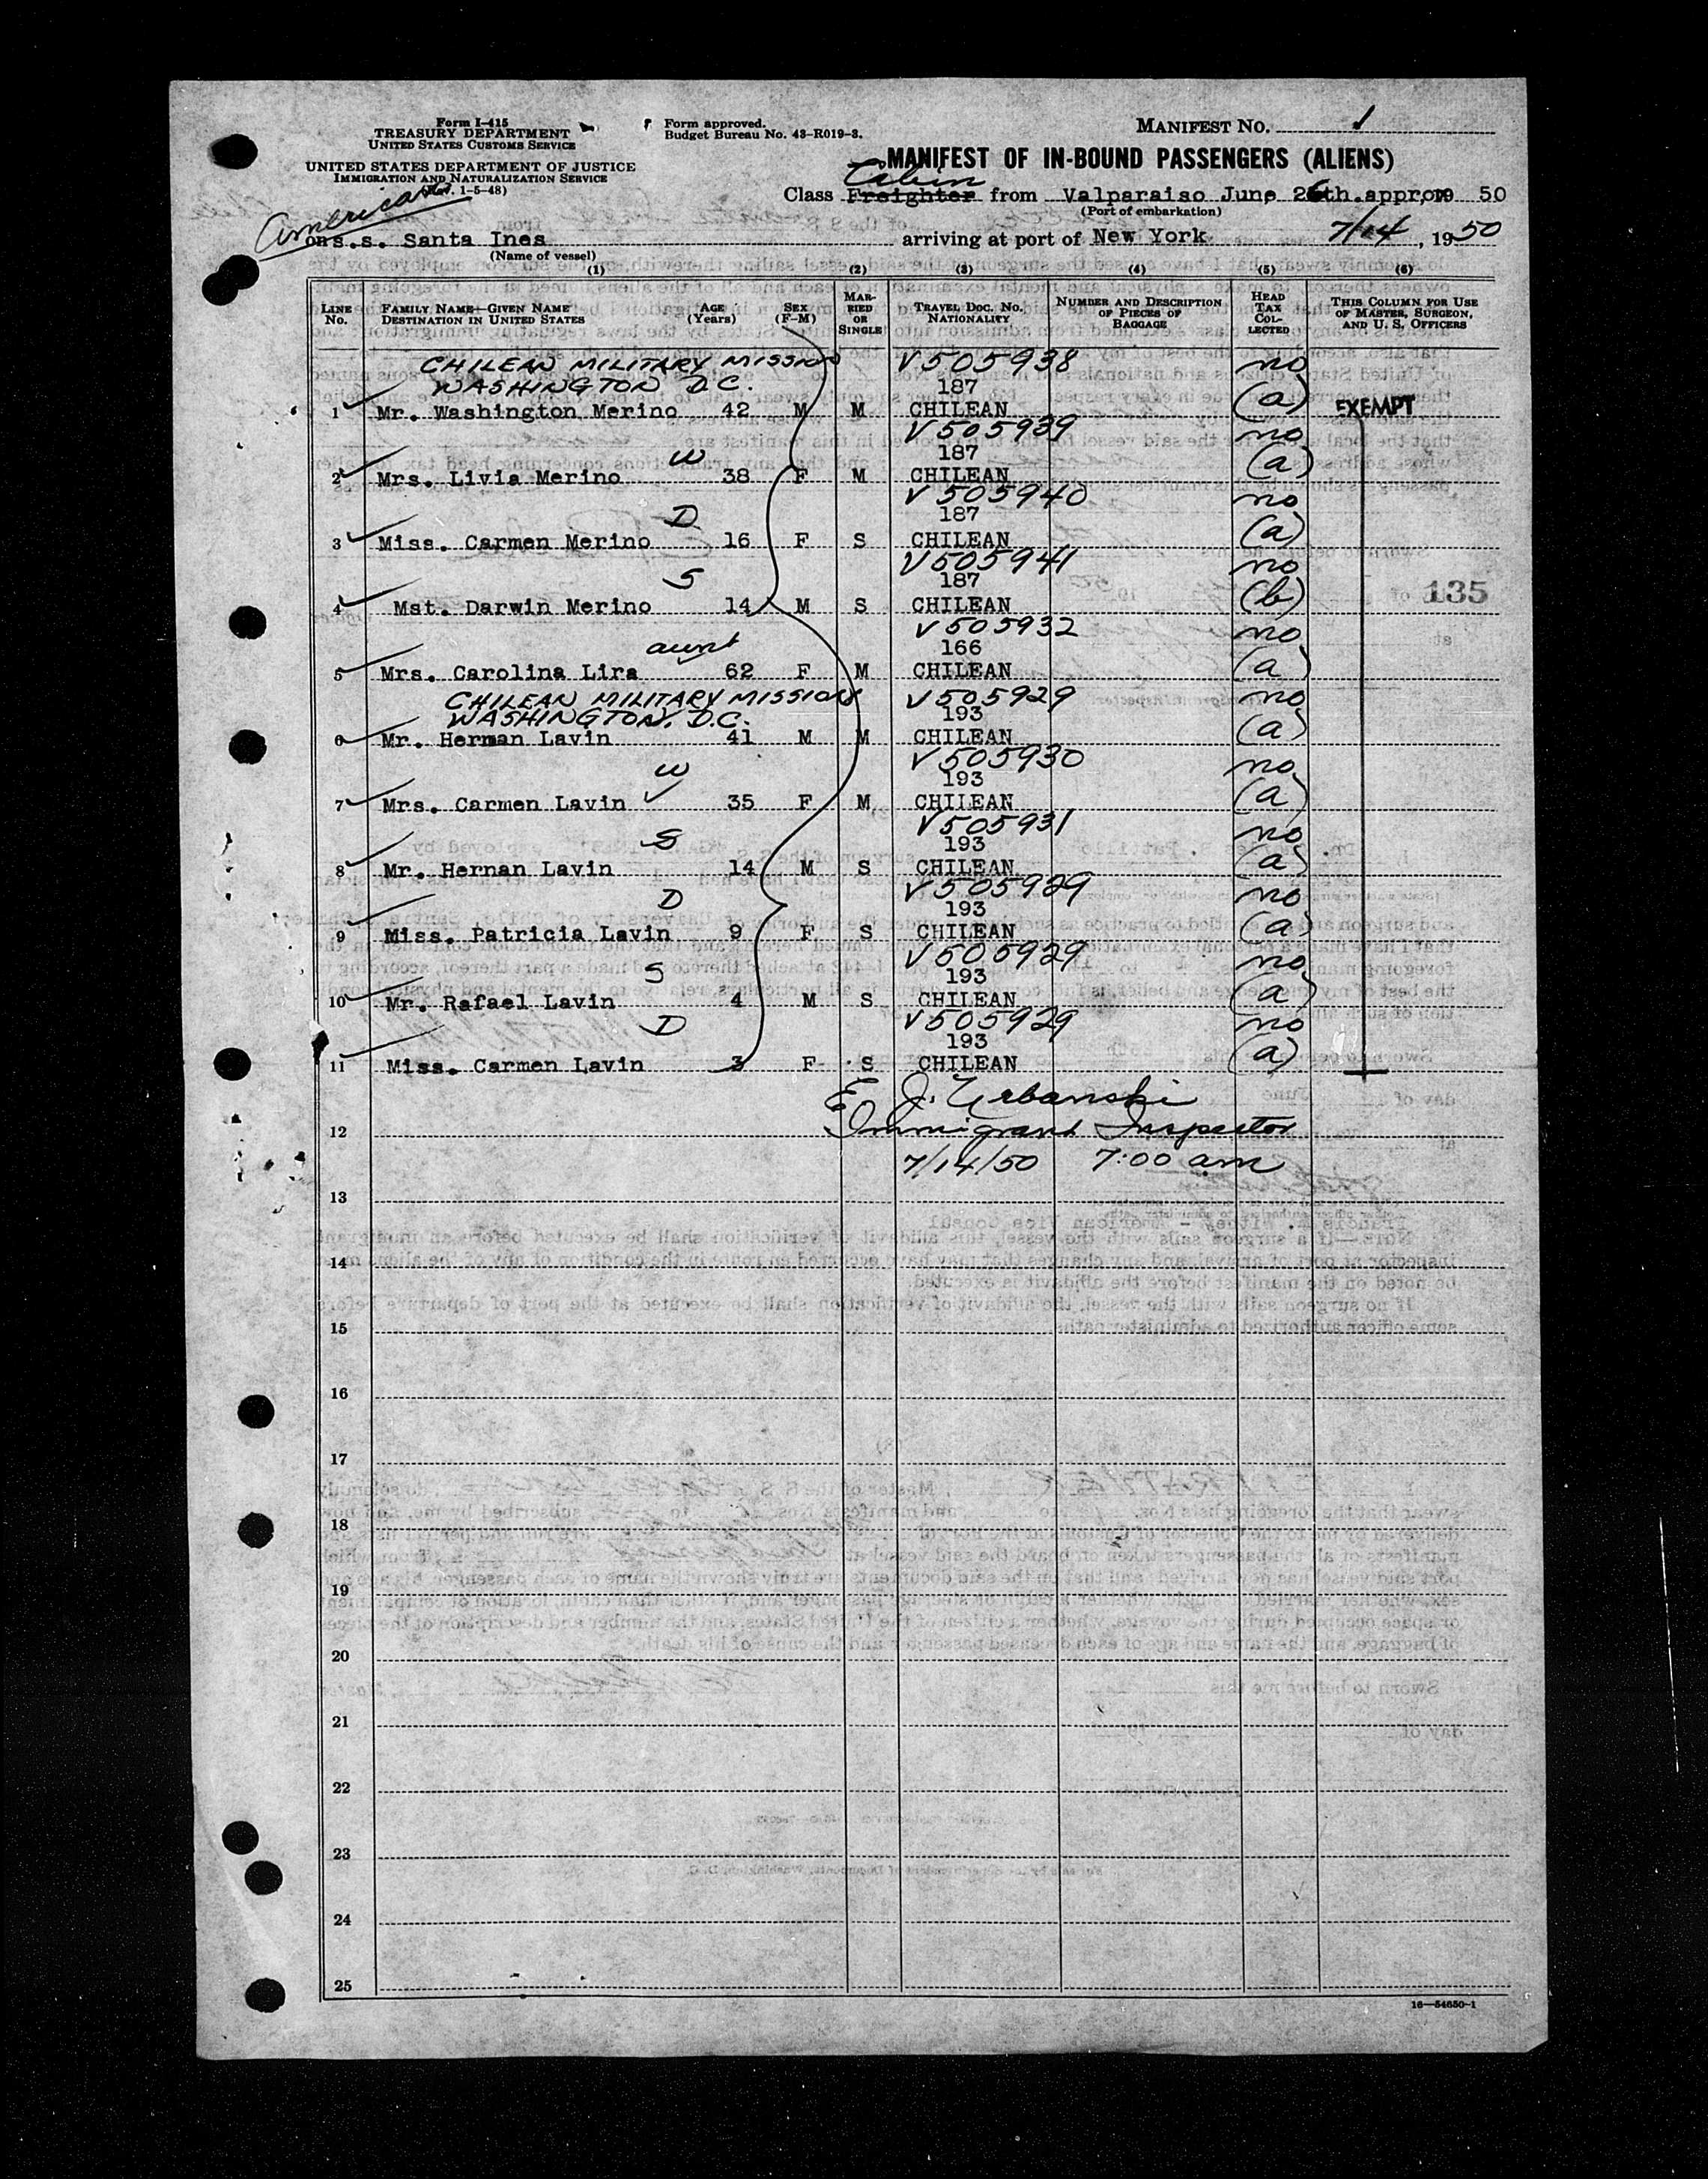 Form I-415
TREASURY DEPARTMENT
UNITED STATES CUSTOMS SERVICE
UNITED STATES DEPARTMENT OF JUSTICE
IMMIGRATION AND NATURALIZATION SERVICE
1-5-48)
Form approved.
Budget Bureau No. 43-R019-3.
MANIFEST No. 1
MANIFEST OF IN-BOUND PASSENGERS (ALIENS)
Cabin
Class Freighter from Valparaiso June 26th.approx 19 50
(Port of embarkation)
American
on s.s. Santa Ines arriving at port of New York 7/14, 1950
(Name of vessel)
(1) (2) (3) (4) (5) (6)
LINE No. FAMILY NAME—GIVEN NAME DESTINATION IN UNITED STATES AGE (Years) SEX (F-M) MARRIED OR SINGLE TRAVEL DOC. NO. NATIONALITY NUMBER AND DESCRIPTION OF PIECES OF BAGGAGE HEAD TAX COLLECTED THIS COLUMN FOR USE OF MASTER, SURGEON, AND U. S. OFFICERS
CHILEAN MILITARY MISSION V505938 no
WASHINGTON D.C. 187
1 Mr. Washington Merino 42 M M CHILEAN (a) EXEMPT
V505939 no
W 187
2 Mrs. Livia Merino 38 F M CHILEAN (a)
V505940 no
D 187
3 Miss. Carmen Merino 16 F S CHILEAN (a)
V505941 no
S 187
4 Mst. Darwin Merino 14 M S CHILEAN (b) 135
V505932 no
aunt 166
5 Mrs. Carolina Lira 62 F M CHILEAN (a)
CHILEAN MILITARY MISSION V505929 no
WASHINGTON, D.C. 193
6 Mr. Herman Lavin 41 M M CHILEAN (a)
V505930 no
W 193
7 Mrs. Carmen Lavin 35 F M CHILEAN (a)
V505931 no
S 193
8 Mr. Hernan Lavin 14 M S CHILEAN (a)
V505929 no
D 193
9 Miss. Patricia Lavin 9 F S CHILEAN (a)
V505929 no
S 193
10 Mr. Rafael Lavin 4 M S CHILEAN (a)
V505929 no
D 193
11 Miss. Carmen Lavin 3 F S CHILEAN (a)
E J. Urbanski
12 Immigrant Inspector
7/14/50 7:00 am
13
14
15
16
17
18
19
20
21
22
23
24
25
16—54650-1